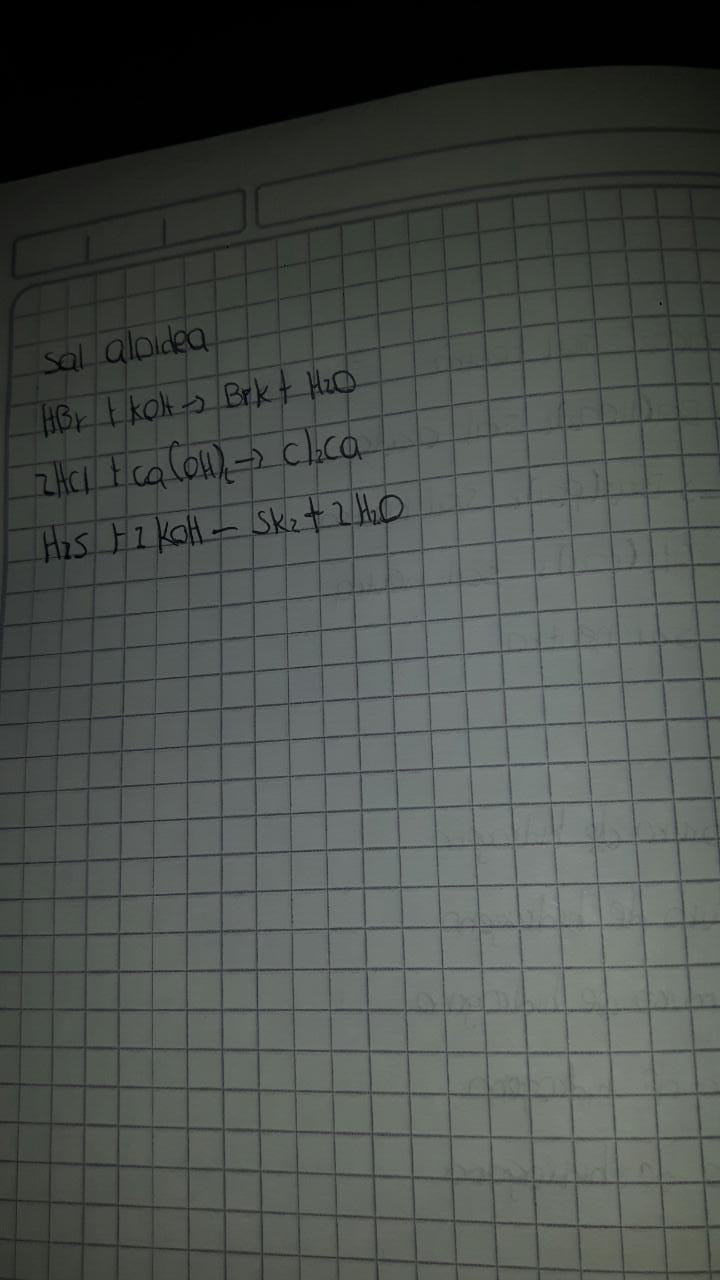 sal aloidea
HBr + KOH → BrK + H₂O
2HCl + Ca(OH)₂ → Cl₂Ca
H₂S + 2 KOH — SK₂ + 2 H₂O